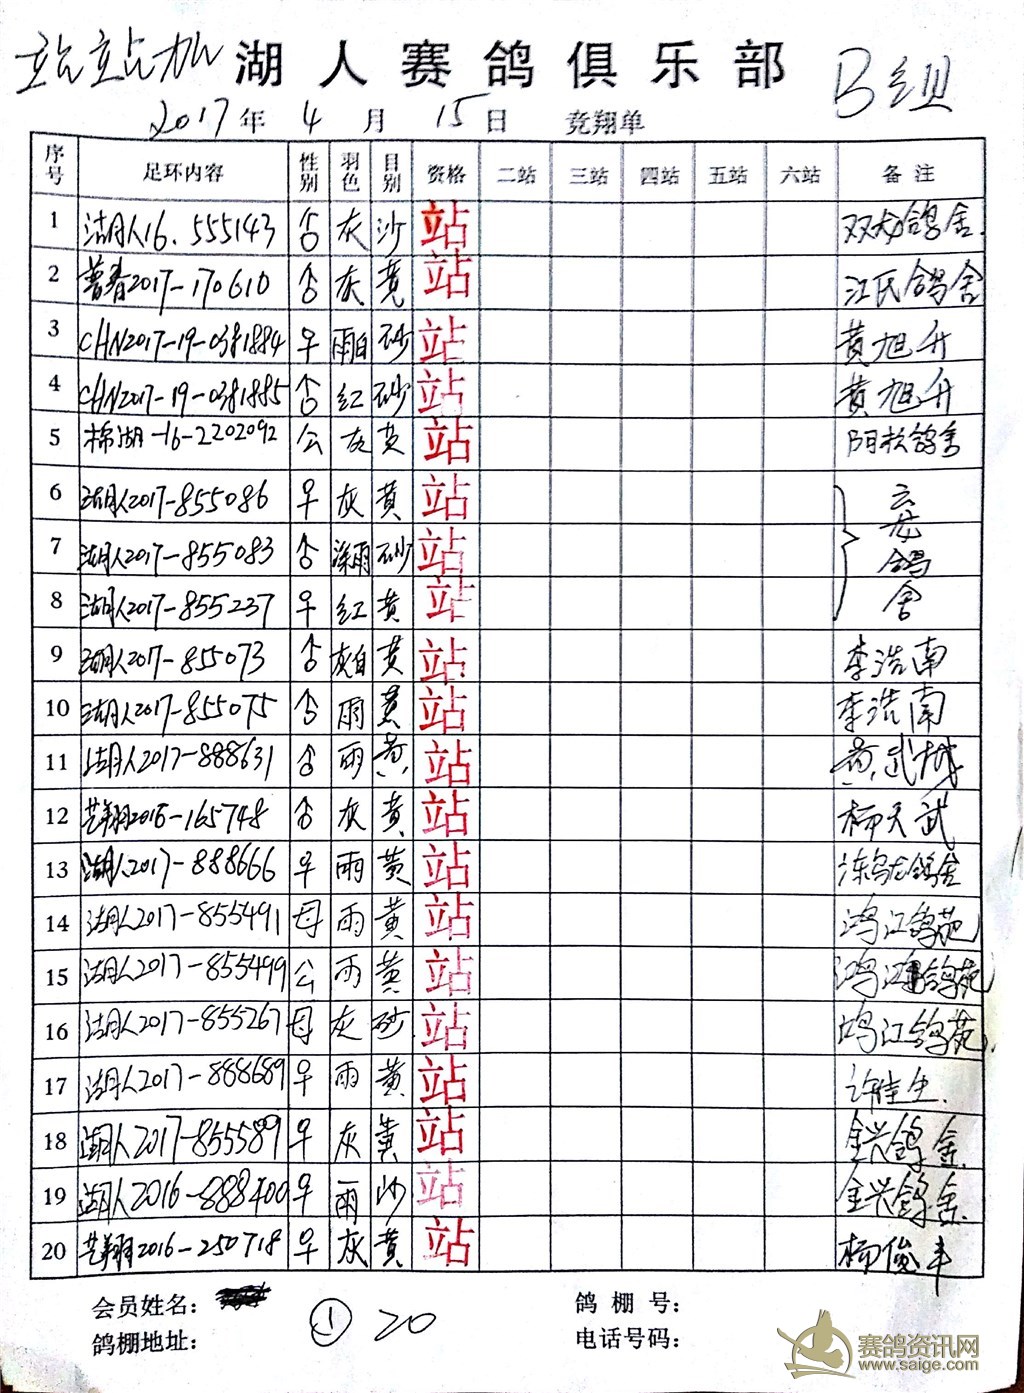 站站加 湖人赛鸽俱乐部 B组
2017年 4月 15日 竞翔单
序号 足环内容 性别 羽色 目别 资格 二站 三站 四站 五站 六站 备注
1 湖人16.555143 灰 沙 站 双龙鸽舍.
2 普春2017-170610 灰 黄 站 江氏鸽舍
3 CHN2017-19-0381884 早 雨白 砂 站 黄旭升
4 CHN2017-19-0381885 红 砂 站 黄旭升
5 棉湖-16-2202092 公 灰 黄 站 阳松鸽舍
6 湖人2017-855086 早 灰 黄 站
7 湖人2017-855083 深雨 砂 站 鸽
8 湖人2017-855237 早 红 黄 站 舍
9 湖人2017-855073 灰白 黄 站 李浩南
10 湖人2017-855075 雨 黄 站 李浩南
11 湖人2017-888631 雨 黄 站 黄武城
12 艺翔2016-165748 灰 黄 站 杨天武
13 湖人2017-888666 早 雨 黄 站 乌龙鸽舍
14 湖人2017-855491 母 雨 黄 站 鸿江鸽苑
15 湖人2017-855499 公 雨 黄 站 鸿江鸽苑
16 湖人2017-855267 母 灰 砂 站 鸿江鸽苑.
17 湖人2017-888689 早 雨 黄 站 许佳生.
18 湖人2017-855589 早 灰 黄 站 金兴鸽舍
19 湖人2016-888400 早 雨 沙 站 金兴鸽舍.
20 艺翔2016-250718 早 灰 黄 站 杨俊丰
会员姓名： 鸽棚号：
① 20
鸽棚地址： 电话号码：
赛鸽资讯网
www.saige.com